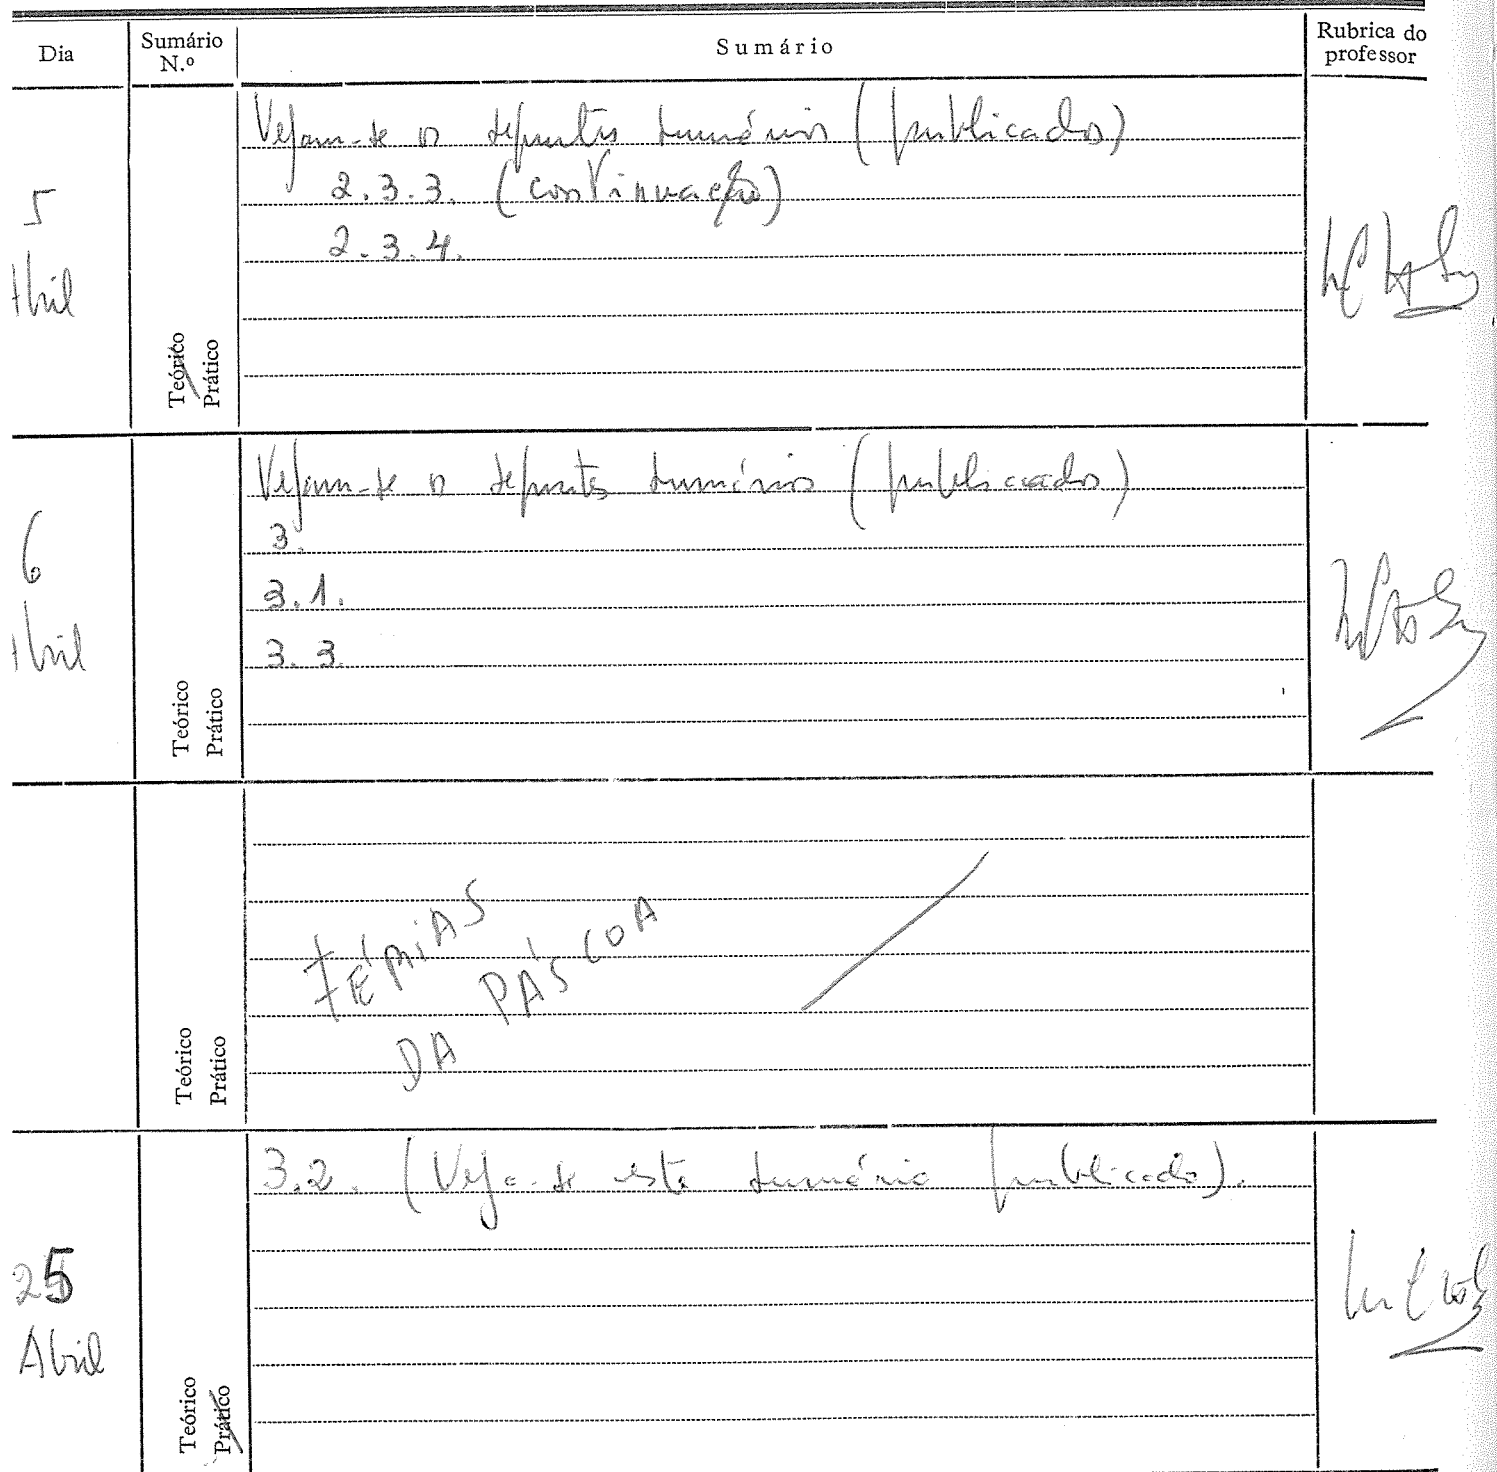 Dia
Sumário N.º
Sumário
Rubrica do professor
5
Abril
Teórico
Prático
Vejam-se os seguintes sumários (publicados)
2.3.3. (continuação)
2.3.4.
6
Abril
Teórico
Prático
Vejam-se os seguintes sumários (publicados)
3.
3.1.
3.3
Teórico
Prático
FÉRIAS
DA PÁSCOA
25
Abril
Teórico
Prático
3.2. (Veja-se este sumário publicado).